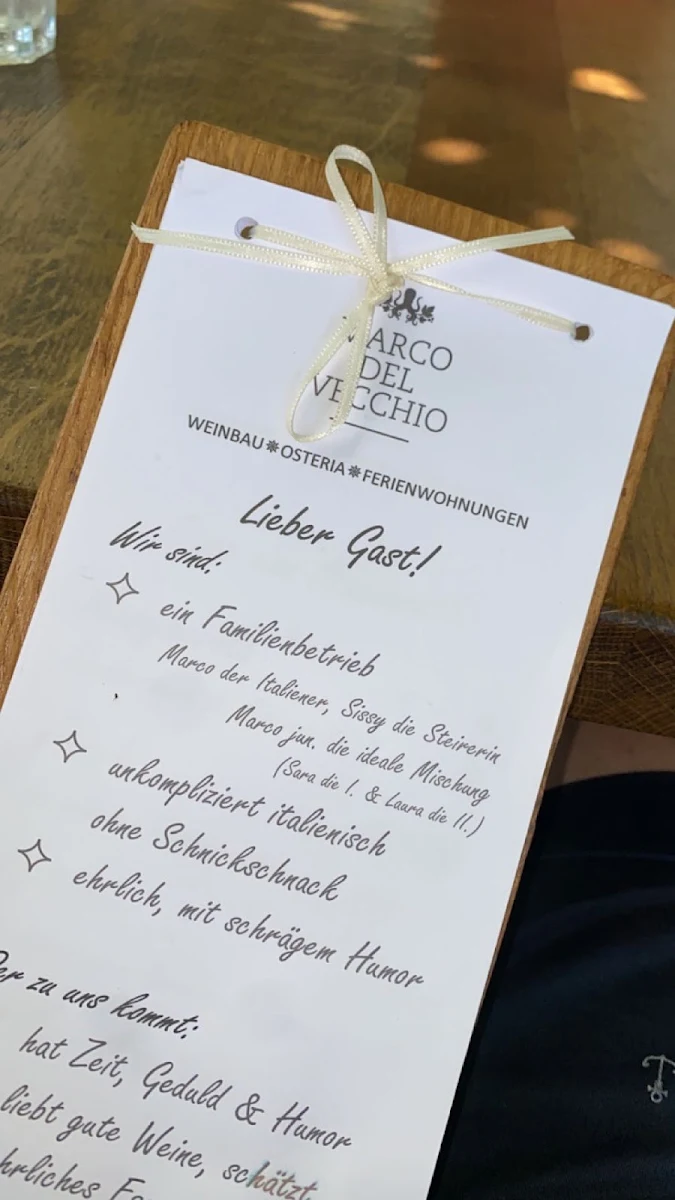 MARCO
DEL
VECCHIO
WEINBAU❋OSTERIA❋FERIENWOHNUNGEN
Lieber Gast!
Wir sind:
ein Familienbetrieb
Marco der Italiener, Sissy die Steirerin
Marco jun. die ideale Mischung
(Sara die I. & Laura die II.)
unkompliziert italienisch
ohne Schnickschnack
ehrlich, mit schrägem Humor
zu uns kommt:
hat Zeit, Geduld & Humor
liebt gute Weine, schätzt